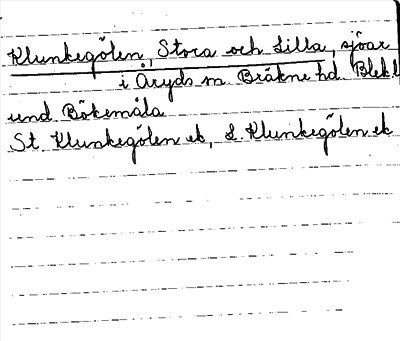 Klunkegölen, Stora och Lilla, sjöar
i Åryds sn. Bräkne hd. Blek.l
und. Bökemåla
St. Klunkegölen ek, L. Klunkegölen ek